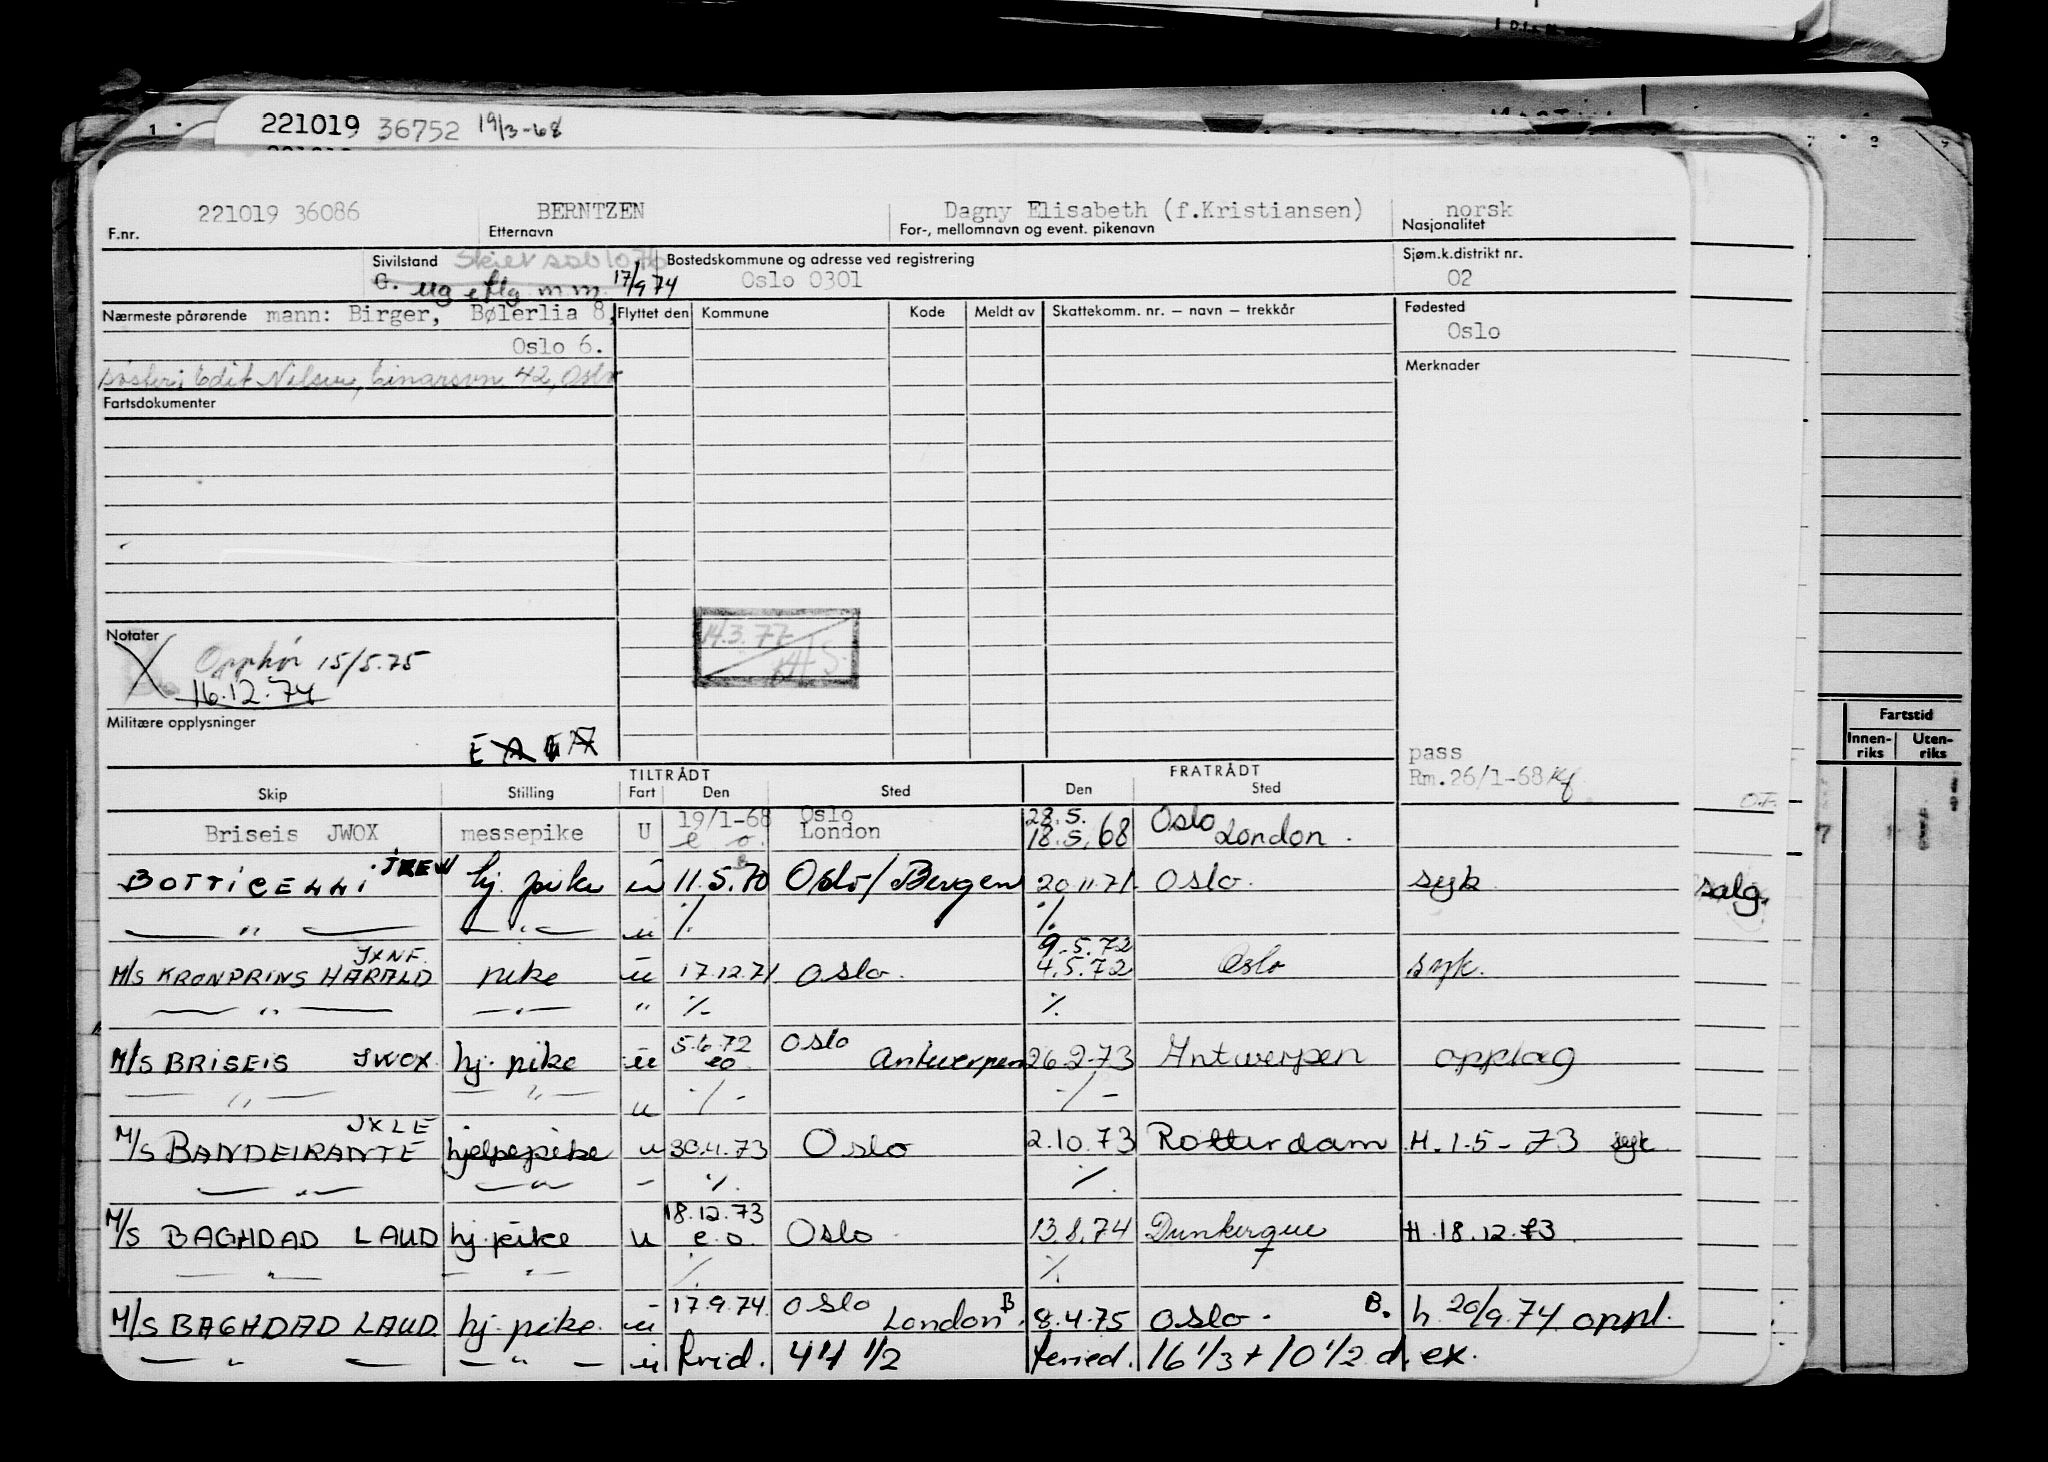 221019 36752 19/3-68
221019 36086 BERNTZEN Dagny Elisabeth (f.Kristiansen) norsk
F.nr. Etternavn For-, mellomnavn og event. pikenavn Nasjonalitet
Sivilstand Bostedskommune og adresse ved registrering Sjøm.k.distrikt nr.
G. ug 17/9 74 Oslo 0301 02
Nærmeste pårørende mann: Birger, Bølerlia 8, Flyttet den Kommune Kode Meldt av Skattekomm. nr. — navn — trekkår Fødested
Oslo 6. Oslo
søster: Edit Nilsen, Einarsvn 42, Oslo Merknader
Fartsdokumenter
Notater 14.3.77
Opphør 15/5.75
16.12.74
Militære opplysninger
pass
Rm.26/1-68
TILTRÅDT FRATRÅDT
Skip Stilling Fart Den Sted Den Sted
Fartstid
Innen-riks Uten-riks
Briseis JWOX messepike U 19/1-68 e o. Oslo London 28.5. 18.5.68 Oslo London.
BOTTICELLI hj. pike u 11.5.70 Oslo/Bergen 20.11.71 Oslo. syk salg.
— " — — " — u % %
M/S KRONPRINS HARALD JXNF. pike u 17.12.71 Oslo. 9.5.72 4.5.72 Oslo syk.
— " — — " — " % %
M/S BRISEIS JWOX. hj. pike u 5.6.72 eo Oslo Antwerpen 26.2.73 Antwerpen opplag
— " — — " — u -/- -/-
M/S BANDEIRANTE JXLE hjelpepike u 30.4.73 Oslo 2.10.73 Rotterdam H. 1.5-73 syk
— " — — " — - % %
M/S BAGHDAD LAUD hj. pike u 18.12.73 e.o. Oslo 13.8.74 Dunkerque H.18.12.73.
— " — — " — % %
M/S BAGHDAD LAUD hj. pike u 17.9.74. Oslo London B. 8.4.75 Oslo. B. h 20/9.74 oppl.
— " — — " — u 44 1/2 feried. 16 1/3 + 10 1/2 d. ex.